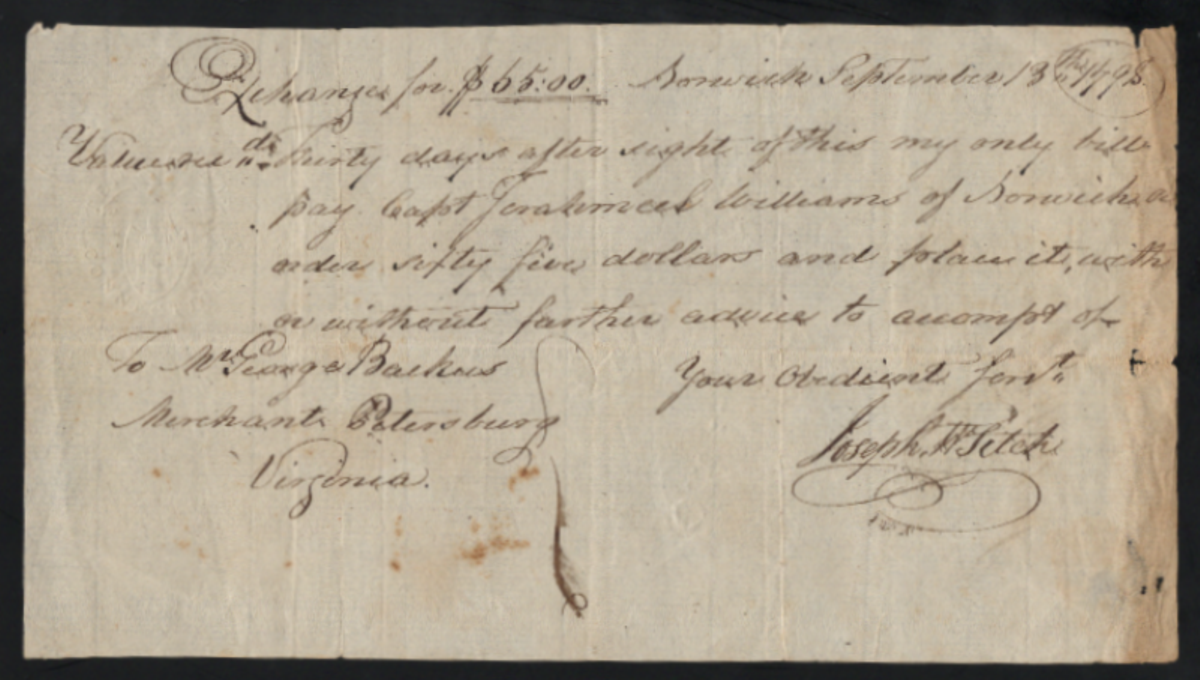 Exchange for $65:00. Norwich September 13th 1798.
Value rec'd Thirty days after sight of this my only bill
pay Capt Jerahmeel Williams of Norwich or
order sixty five dollars and place it, with
or without farther advice to accompt of
To Mr George Backus Your Obedient Servt
Merchant Petersburg Joseph Wm Fitch
Virginia.